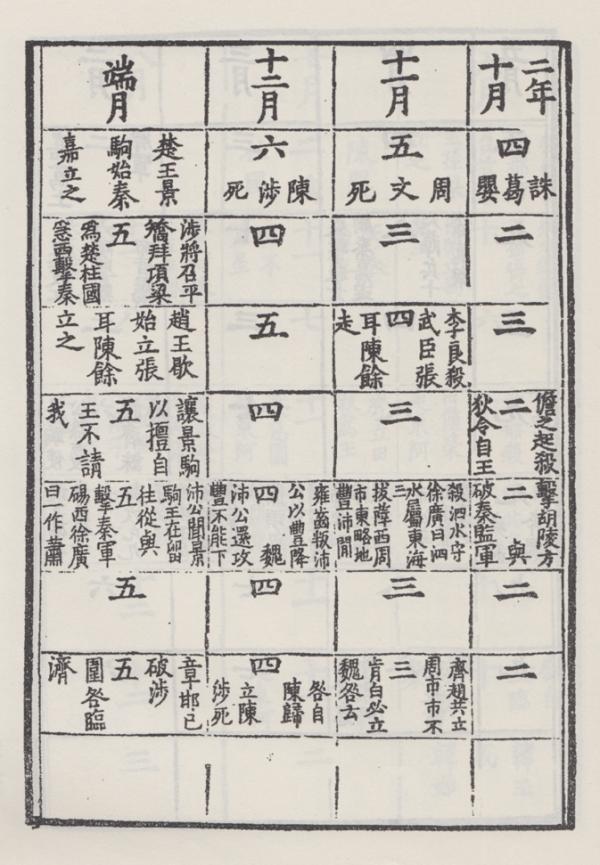 二年
十月
十一月
十二月
端月
四
誅葛嬰
五
周文死
六
陳涉死
楚王景
駒始秦
嘉立之
二
三
四
涉將召平
矯拜項梁
五
爲楚柱國
急西擊秦
三
李良殺
武臣張
四
耳陳餘
走
五
趙王歇
始立張
耳陳餘
立之
儋之起殺
二
狄令自王
三
四
讓景駒
以擅自
五
王不請
我
擊胡陵方
二與
破秦監軍
殺泗水守
徐廣曰泗
水屬東海
三
拔薛西周
市東略地
豐沛閒
雍齒叛沛
公以豐降
四魏
沛公還攻
豐不能下
沛公聞景
駒王在留
往從與
五
擊秦軍
碭西徐廣
曰一作蕭
二
三
四
五
二
齊趙共立
周市市不
三
肯曰必立
魏咎云
咎自
陳歸
四
立陳
涉死
章邯已
破涉
五
圍咎臨
濟